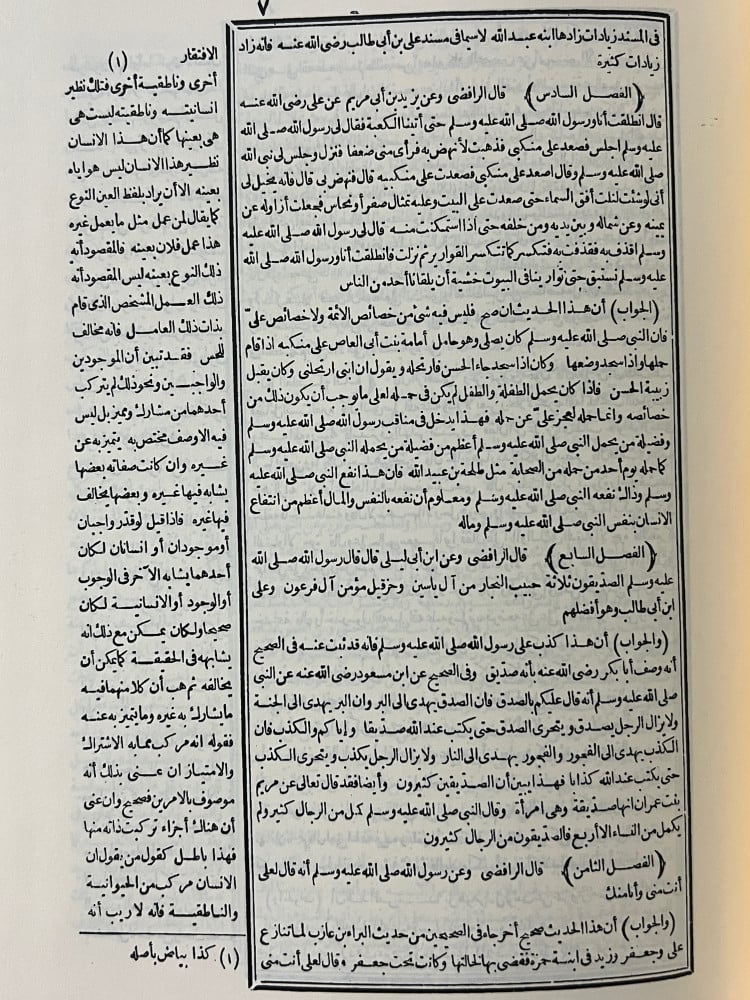 فى المسند زيادات زادها ابنه عبد الله لاسيما فى مسند على بن أبى طالب رضى الله عنه فانه زاد
زيادات كثيرة
(الفصل السادس) قال الرافضى وعن يزيد بن أبى مريم عن على رضى الله عنه
قال انطلقت أنا ورسول الله صلى الله عليه وسلم حتى أتينا الكعبة فقال لى رسول الله صلى الله
عليه وسلم اجلس فصعد على منكبى فذهبت لأنهض به فرأى منى ضعفا فنزل وجلس لى نبى الله
صلى الله عليه وسلم وقال اصعد على منكبى فصعدت على منكبيه قال فنهض بى قال فانه يخيل لى
أنى لو شئت لنلت أفق السماء حتى صعدت على البيت وعليه تمثال صفر أو نحاس فجعلت أزاوله عن
يمينه وعن شماله وبين يديه ومن خلفه حتى اذا استمكنت منه قال لى رسول الله صلى الله عليه
وسلم اقذف به فقذفت به فتكسر كما تتكسر القوارير ثم نزلت فانطلقت أنا ورسول الله صلى الله
عليه وسلم نستبق حتى توارينا فى البيوت خشية أن يلقانا أحد من الناس
(الجواب) أن هذا الحديث ان صح فليس فيه شئ من خصائص الائمة ولا خصائص علىّ
فان النبى صلى الله عليه وسلم كان يصلى وهو حامل أمامة بنت أبى العاص على منكبه اذا قام
حملها واذا سجد وضعها وكان اذا سجد جاء الحسن فارتحله ويقول ان ابنى ارتحلنى وكان يقبل
زبيبة الحسن فاذا كان يحمل الطفلة والطفل لم يكن فى حمله لعلى ما يوجب أن يكون ذلك من
خصائصه وانما حمله لعجز علىّ عن حمله فهذا يدخل فى مناقب رسول الله صلى الله عليه وسلم
وفضيلة من يحمل النبى صلى الله عليه وسلم أعظم من فضيلة من يحمله النبى صلى الله عليه وسلم
كما حمله يوم أحد من حمله من الصحابة مثل طلحة بن عبيد الله فان هذا نفع النبى صلى الله عليه
وسلم وذاك نفعه النبى صلى الله عليه وسلم ومعلوم أن نفعه بالنفس والمال أعظم من انتفاع
الانسان بنفس النبى صلى الله عليه وسلم وماله
(الفصل السابع) قال الرافضى وعن ابن أبى ليلى قال قال رسول الله صلى الله
عليه وسلم الصديقون ثلاثة حبيب النجار من آل ياسين وحزقيل مؤمن آل فرعون وعلى
ابن أبى طالب وهو أفضلهم
(والجواب) أن هذا كذب على رسول الله صلى الله عليه وسلم فانه قد ثبت عنه فى الصحيح
أنه وصف أبا بكر رضى الله عنه بأنه صديق وفى الصحيح عن ابن مسعود رضى الله عنه عن النبى
صلى الله عليه وسلم أنه قال عليكم بالصدق فان الصدق يهدى الى البر وان البر يهدى الى الجنة
ولا يزال الرجل يصدق ويتحرى الصدق حتى يكتب عند الله صديقا واياكم والكذب فان
الكذب يهدى الى الفجور والفجور يهدى الى النار ولا يزال الرجل يكذب ويتحرى الكذب
حتى يكتب عند الله كذابا فهذا يبين أن الصديقين كثيرون وأيضا فقد قال تعالى عن مريم
بنت عمران انها صديقة وهى امرأة وقال النبى صلى الله عليه وسلم كمل من الرجال كثير ولم
يكمل من النساء الا أربع فالصديقون من الرجال كثيرون
(الفصل الثامن) قال الرافضى وعن رسول الله صلى الله عليه وسلم أنه قال لعلى
أنت منى وأنا منك
(والجواب) أن هذا الحديث صحيح أخرجاه فى الصحيحين من حديث البراء بن عازب لما تنازع
على وجعفر وزيد فى ابنة حمزة فقضى بها لخالتها وكانت تحت جعفر وقال لعلى أنت منى
الافتقار (١)
أخرى وناطقية أخرى فتلك نظير
انسانيته وناطقيته ليست هى
هى بعينها كما أن هذا الانسان
نظير هذا الانسان ليس هو اياه
بعينه الا أن يراد بلفظ العين النوع
كما يقال لمن عمل مثل ما يعمل غيره
هذا عمل فلان بعينه فالمقصود أنه
ذلك النوع بعينه ليس المقصود أنه
ذلك العمل المشخص الذى قام
بذات ذلك العامل فانه مخالف
للحس فقد تبين أن الموجودين
والواجبين ونحو ذلك لم يتركب
أحدهما من مشارك ومميز بل ليس
فيه الا وصف مختص به يتميز به عن
غيره وان كانت صفاته بعضها
يشابه فيها غيره وبعضها يخالف
فيها غيره فاذا قيل لو قدر واجبان
أو موجودان أو انسانان لكان
أحدهما يشابه الآخر فى الوجوب
أو الوجود أو الانسانية لكان
صحيحا ولكان يمكن مع ذلك انه
يشابهه فى الحقيقة كما يمكن أن
يخالفه ثم هب أن كلا منهما فيه
ما يشارك به غيره وما يتميز به عنه
فقوله انه مركب مما به الاشتراك
والامتياز ان عنى بذلك أنه
موصوف بالامرين فصحيح وان عنى
أن هناك أجزاء تركبت ذاته منها
فهذا باطل كقول من يقول ان
الانسان مركب من الحيوانية
والناطقية فانه لا ريب أنه
(١) كذا بياض بأصله